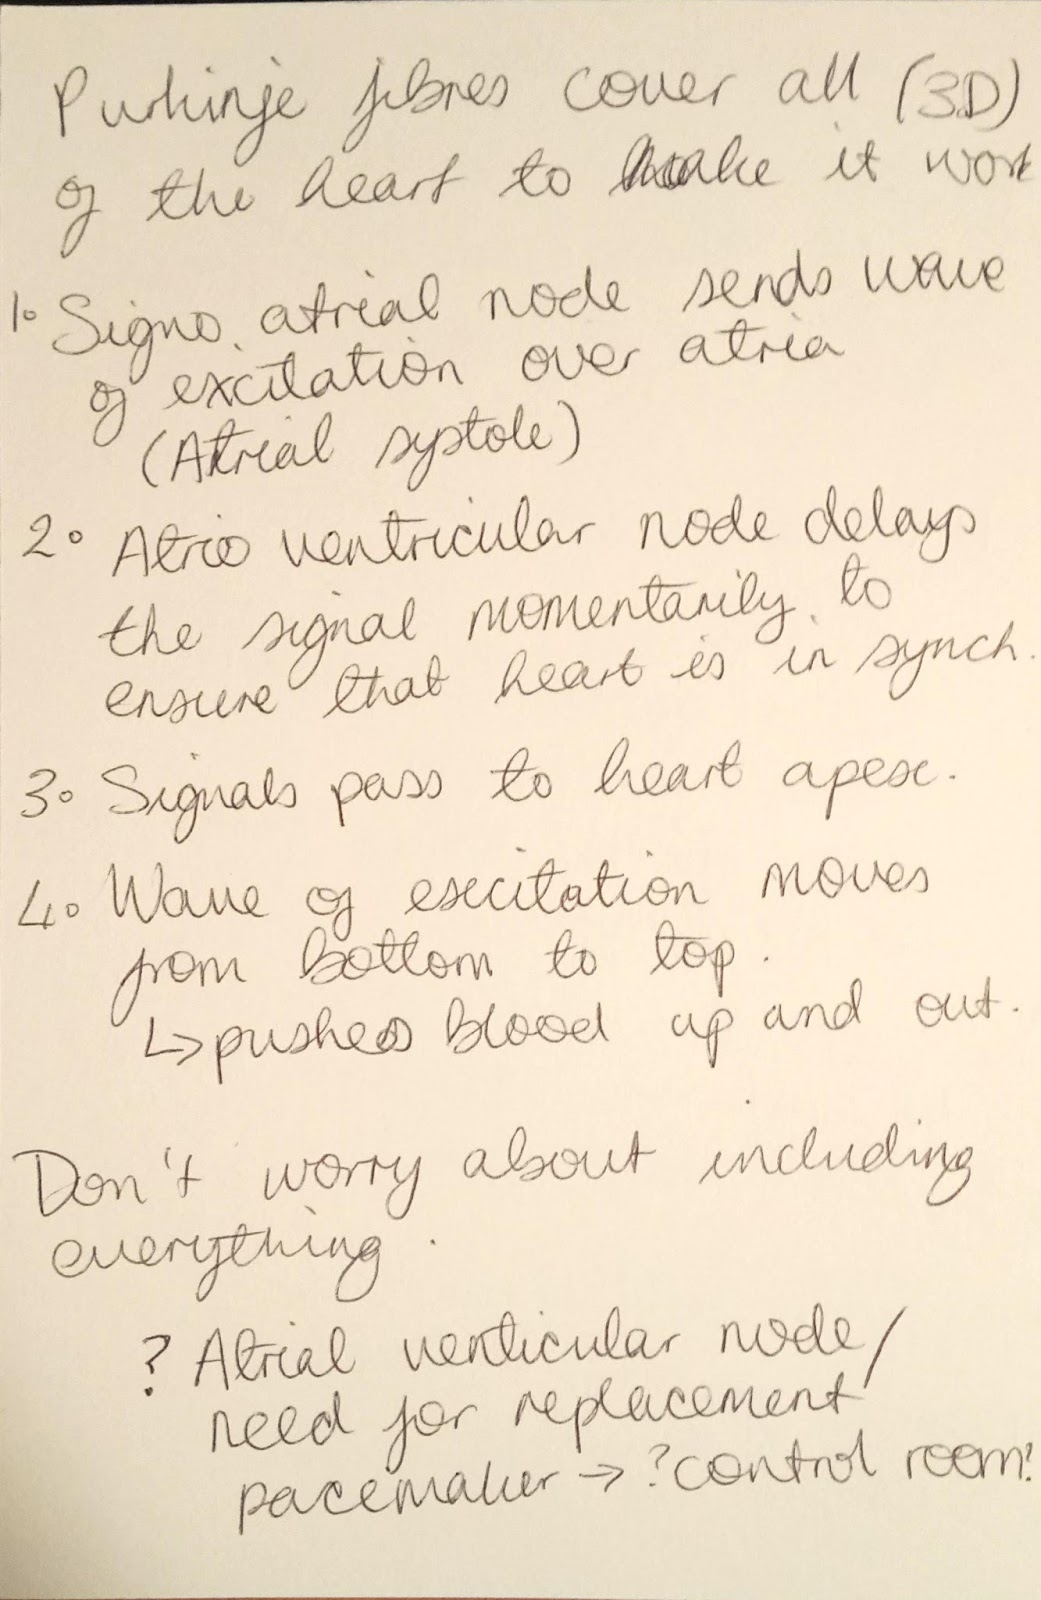 Purkinje fibres cover all (3D)
of the heart to make it work
1. Signo. atrial node sends wave
of excitation over atria
(Atrial systole)
2. Atrio ventricular node delays
the signal momentarily to
ensure that heart is in synch.
3. Signals pass to heart apex.
4. Wave of excitation moves
from bottom to top.
↳ pushes blood up and out.
Don't worry about including
everything.
? Atrial venticular node/
need for replacement
pacemaker → ?control room?